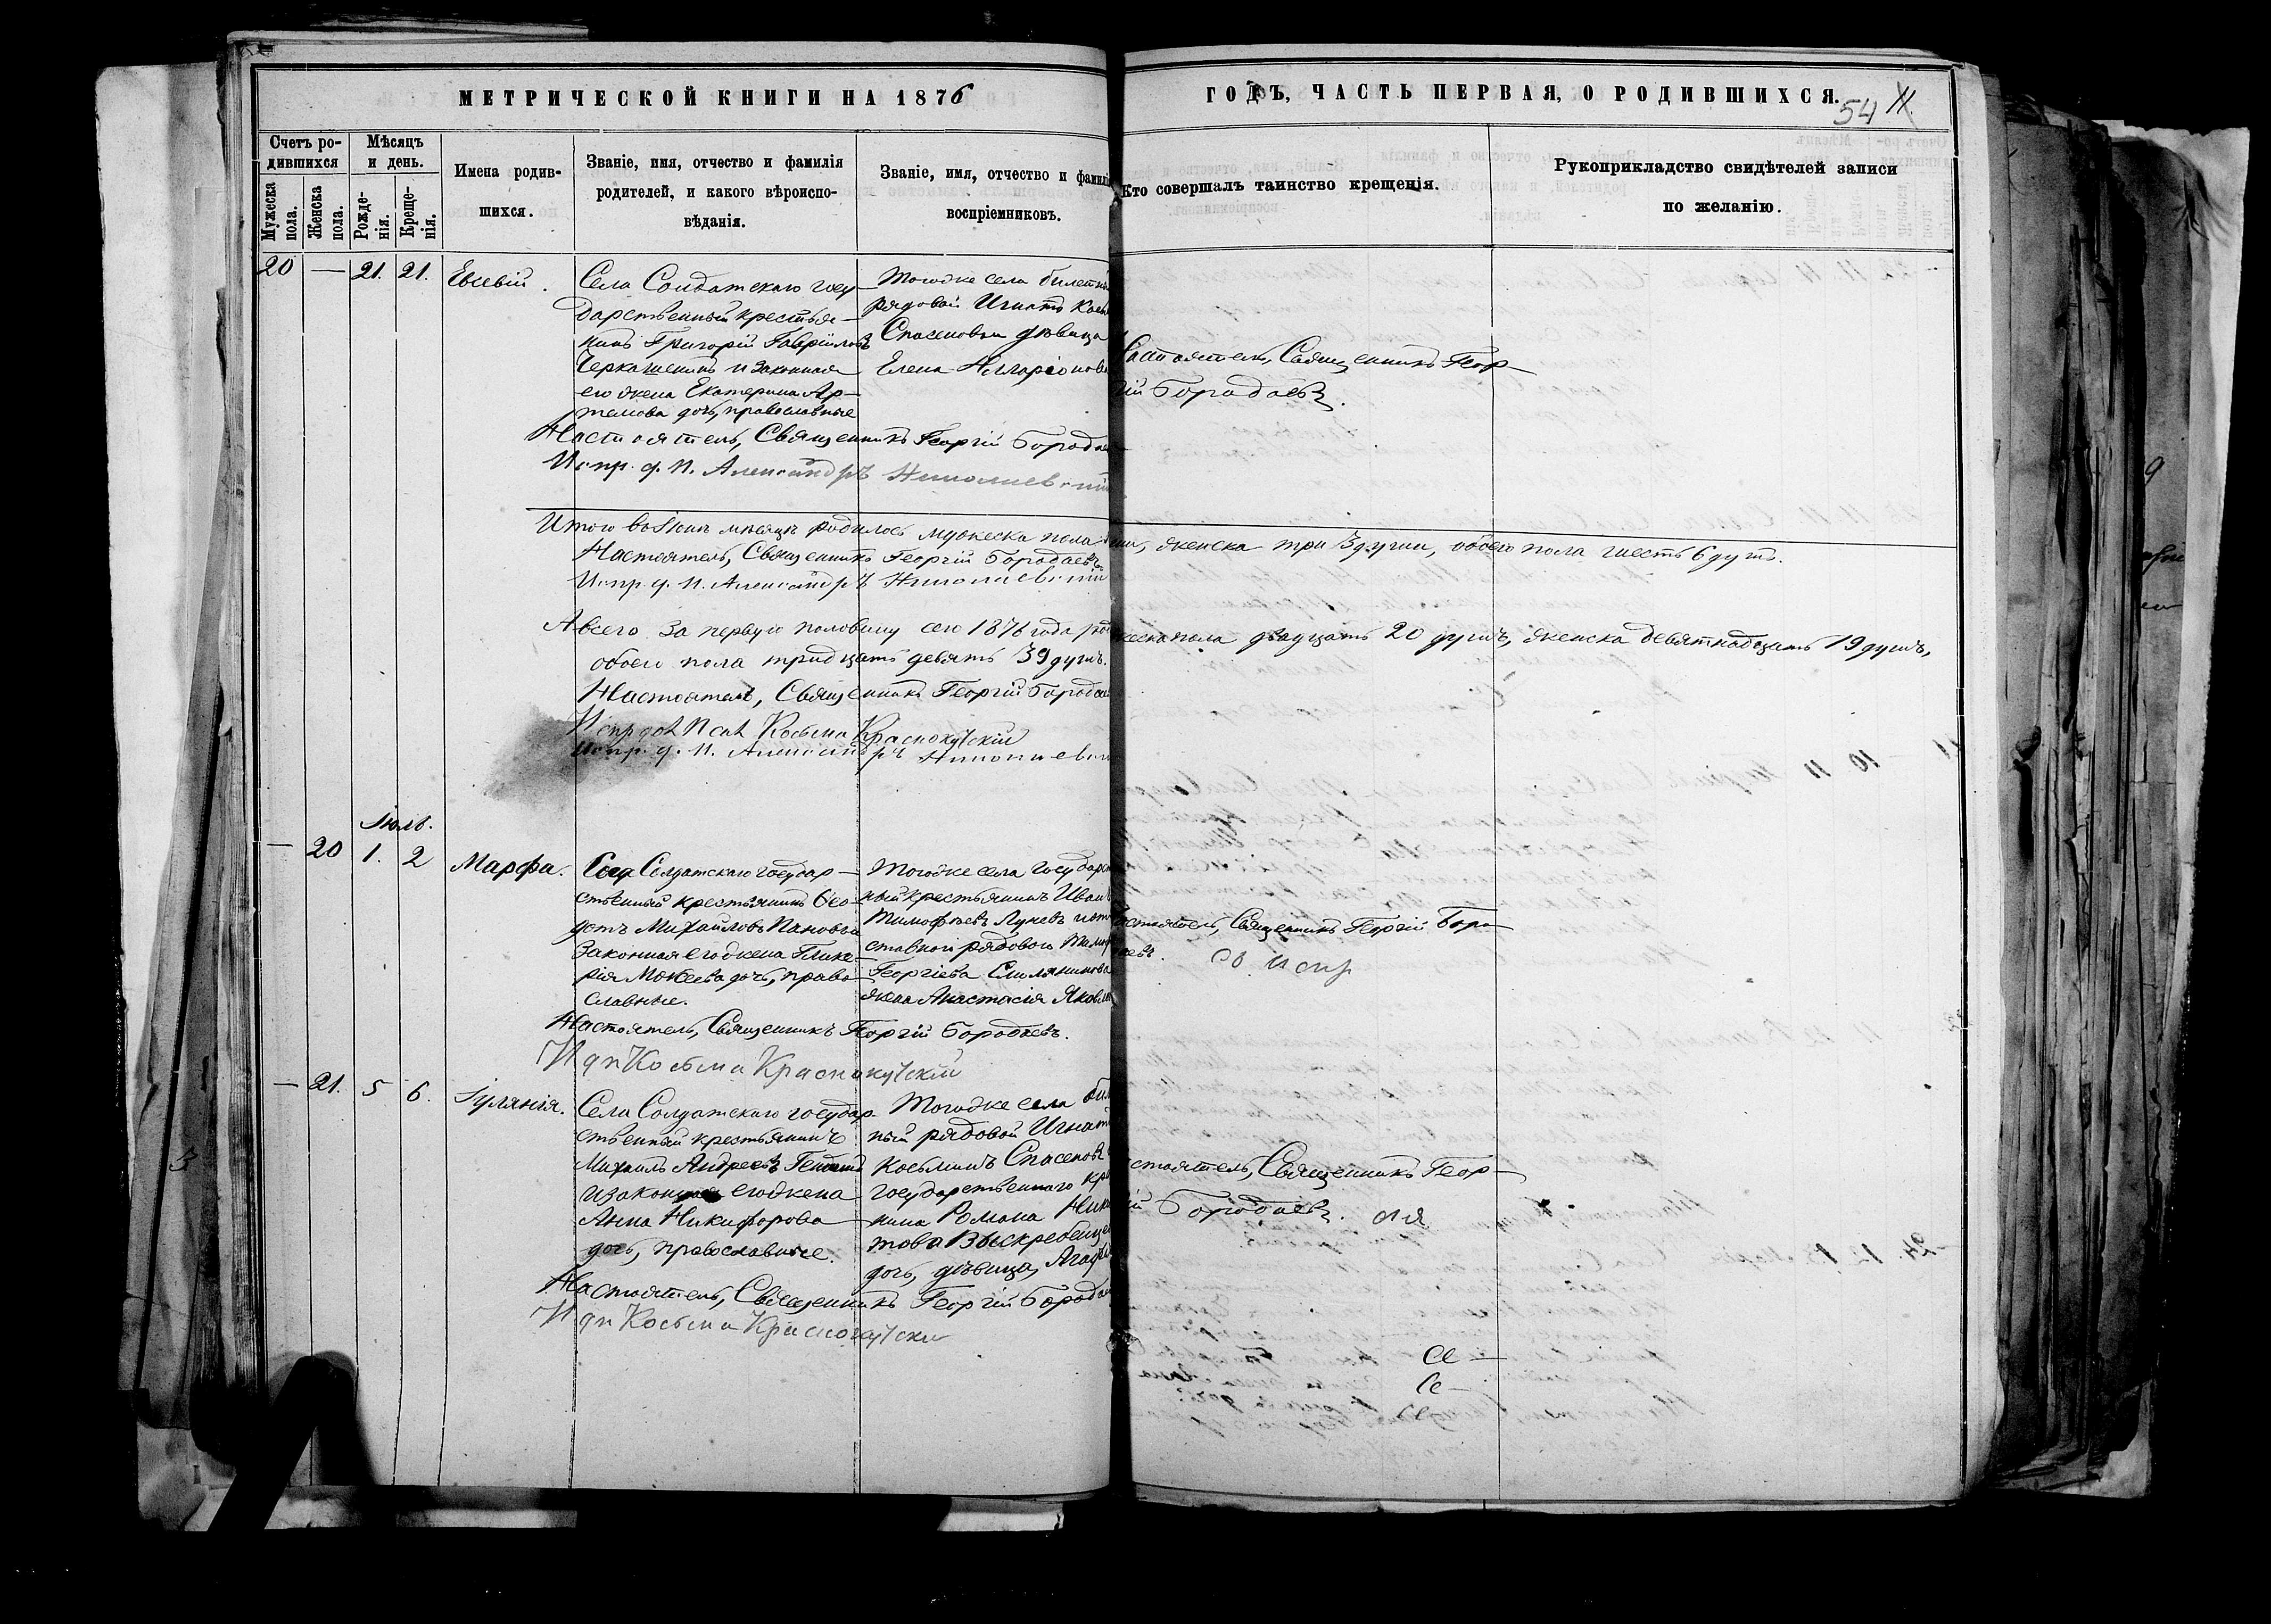 МЕТРИЧЕСКОЙ КНИГИ НА 1876
ГОДЪ, ЧАСТЬ ПЕРВАЯ, О РОДИВШИХСЯ.
54 11
Счетъ ро-
дившихся
Мужеска пола.
Женска пола.
Мѣсяцъ
и день.
Рожде-
нія.
Креще-
нія.
Имена родив-
шихся.
Званіе, имя, отчество и фамилія
родителей, и какого вѣроиспо-
вѣданія.
Званіе, имя, отчество и фамилі
воспріемниковъ.
Кто совершалъ таинство крещенія.
Рукоприкладство свидѣтелей записи
по желанію.
20 — 21. 21. Евсевій.
Села Солдатскаго госу-
дарственный крестья-
нинъ Григорій Гавріиловъ
Черкашенинъ и законная
его жена Екатерина Ар-
темова дочь, православные
Тогоже села билетн
рядовой Игнатъ Косм
Спасеновъ и дѣвица
Елена Илларіонов
Настоятель, Священникъ Геор-
гій Бородаевъ.
Настоятель, Священникъ Георгій Бородае
Испр. д. п. Александръ Николаевскій
Итого въ Іюнѣ мѣсяцѣ родилось мужеска пола души, женска три 3 души, обоего пола шесть 6 душъ.
Настоятель, Священникъ Георгій Бородаевъ
Испр. д. п. Александръ Николаевскій
А всего за первую половину сего 1876 года род жеска пола двадцать 20 душъ, женска девятнадцать 19 душъ,
обоего пола тридцать девять 39 душъ.
Настоятель, Священникъ Георгій Бородае
Испр дол Псал Косьма Краснокутскій
Испр. д. п. Александръ Николаевск
Іюль.
— 20 1. 2 Марфа.
Села Солдатскаго государ-
ственный крестьянинъ Ѳео-
дотъ Михайловъ Пановъ и
законная его жена Глике-
рія Мокеева дочь, право-
славные.
Тогоже села государст
ный крестьянинъ Иванъ
Тимофѣевъ Луневъ и от
ставнаго рядоваго Тимоф
Георгіева Смолянинова
жена Анастасія Яковл
стоятель, Священникъ Георгій Боро-
аевъ.
Настоятель, Священникъ Георгій Бородаевъ.
И д п Косьма Краснокутскій
— 21. 5 6. Іуліанія.
Села Солдатскаго государ
ственный крестьянинъ
Михаилъ Андреевъ
и законная его жена
Анна Никифорова
дочь, православные.
Тогоже села бил
ный рядовой Игнат
Косьминъ Спасеновъ
государственнаго кр
нина Романа Ники
това Выскребенце
дочь, дѣвица, Агаф
стоятель, Священникъ Геор-
ій Бородаевъ.
Настоятель, Священникъ Георгій Борода
И д п Косьма Краснокутски